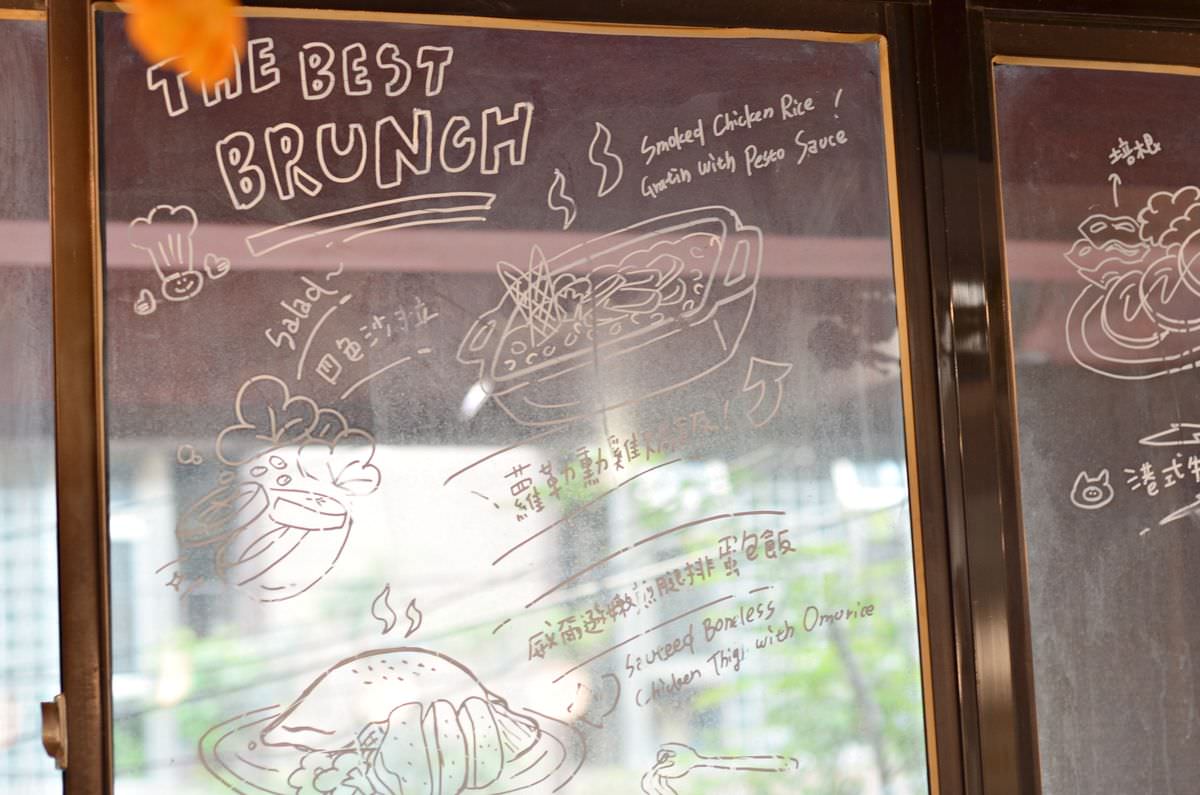 THE BEST
BRUNCH
Smoked Chicken Rice !
Gratin with Pesto Sauce
Salad~
四色沙拉
蘿勒勳雞焗飯!
嫩煎腿排蛋包飯
Sauteed Boneless
Chicken Thigh with Omurice
培根
港式